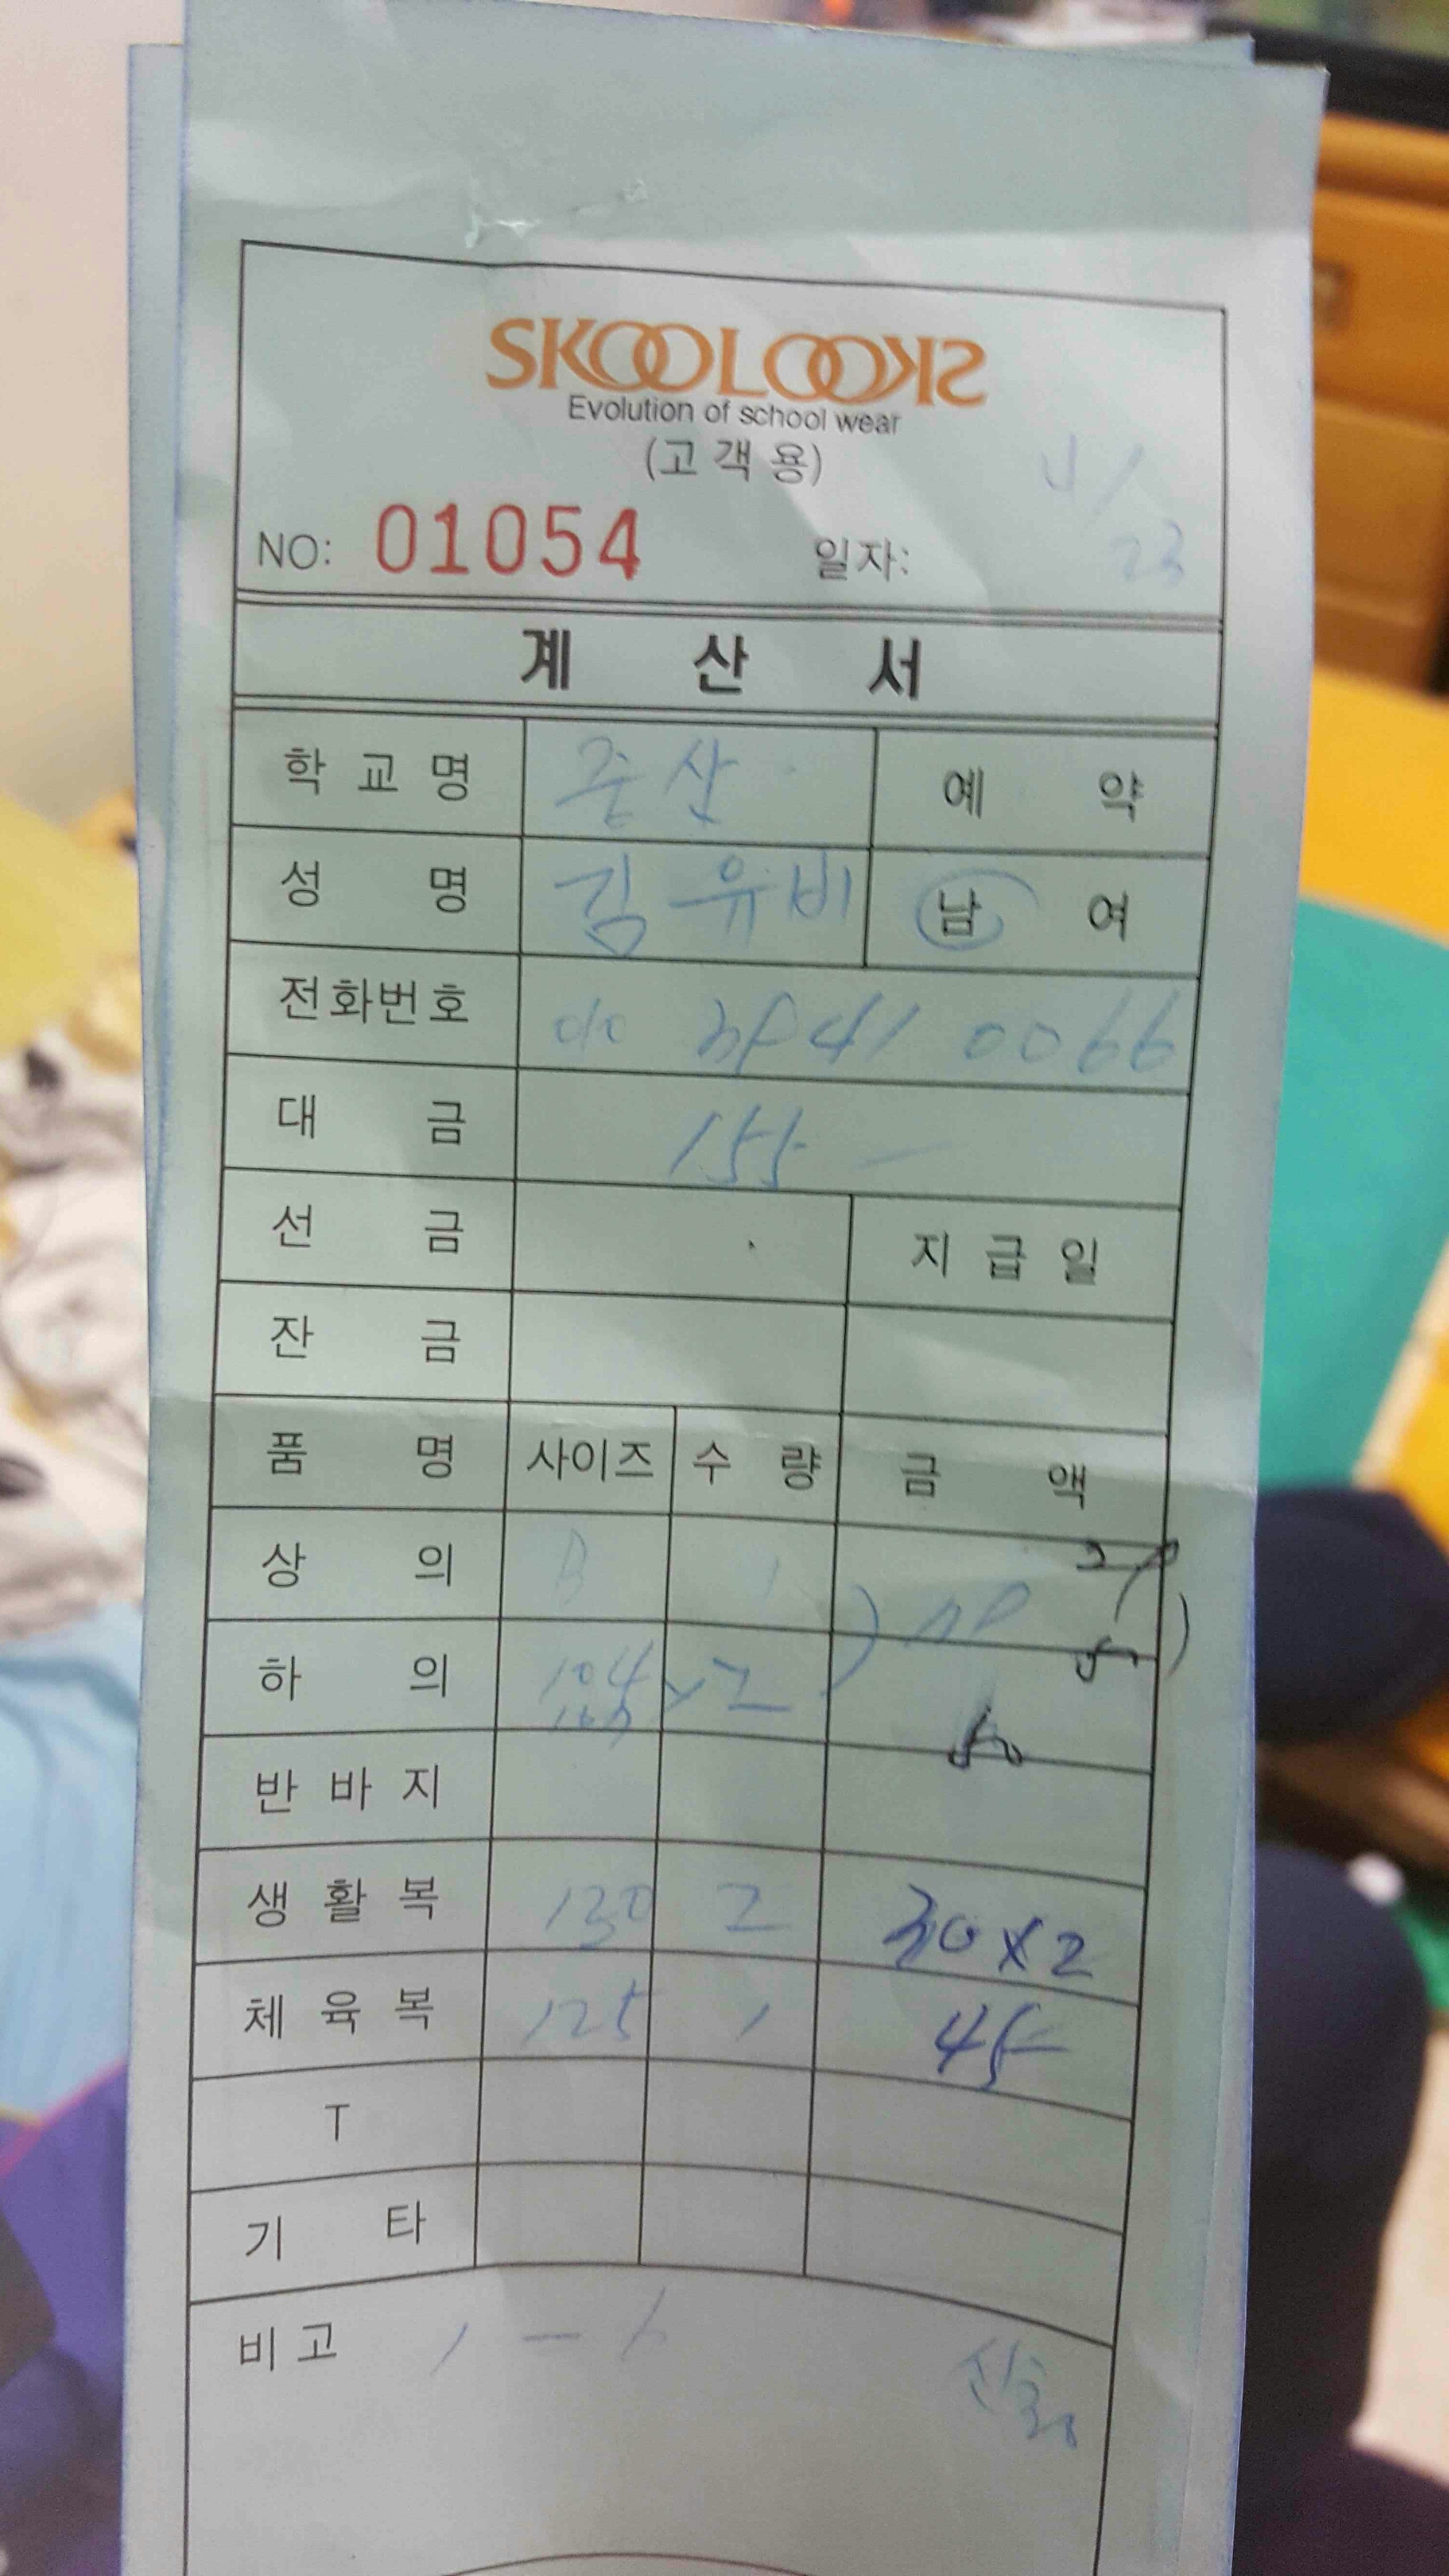 SKOOLOOKS
Evolution of school wear
(고객용)
NO: 01054 일자: 23
계 산 서
학교명 예 약
성 명 김유비 남 여
전화번호 010 41 0066
대 금 155 —
선 금 지급일
잔 금
품 명 사이즈 수 량 금 액
상 의 B 1
하 의 104 x2
반바지
생활복 130 2 30x2
체육복 125 1 45
T
기 타
비고 1 - 6